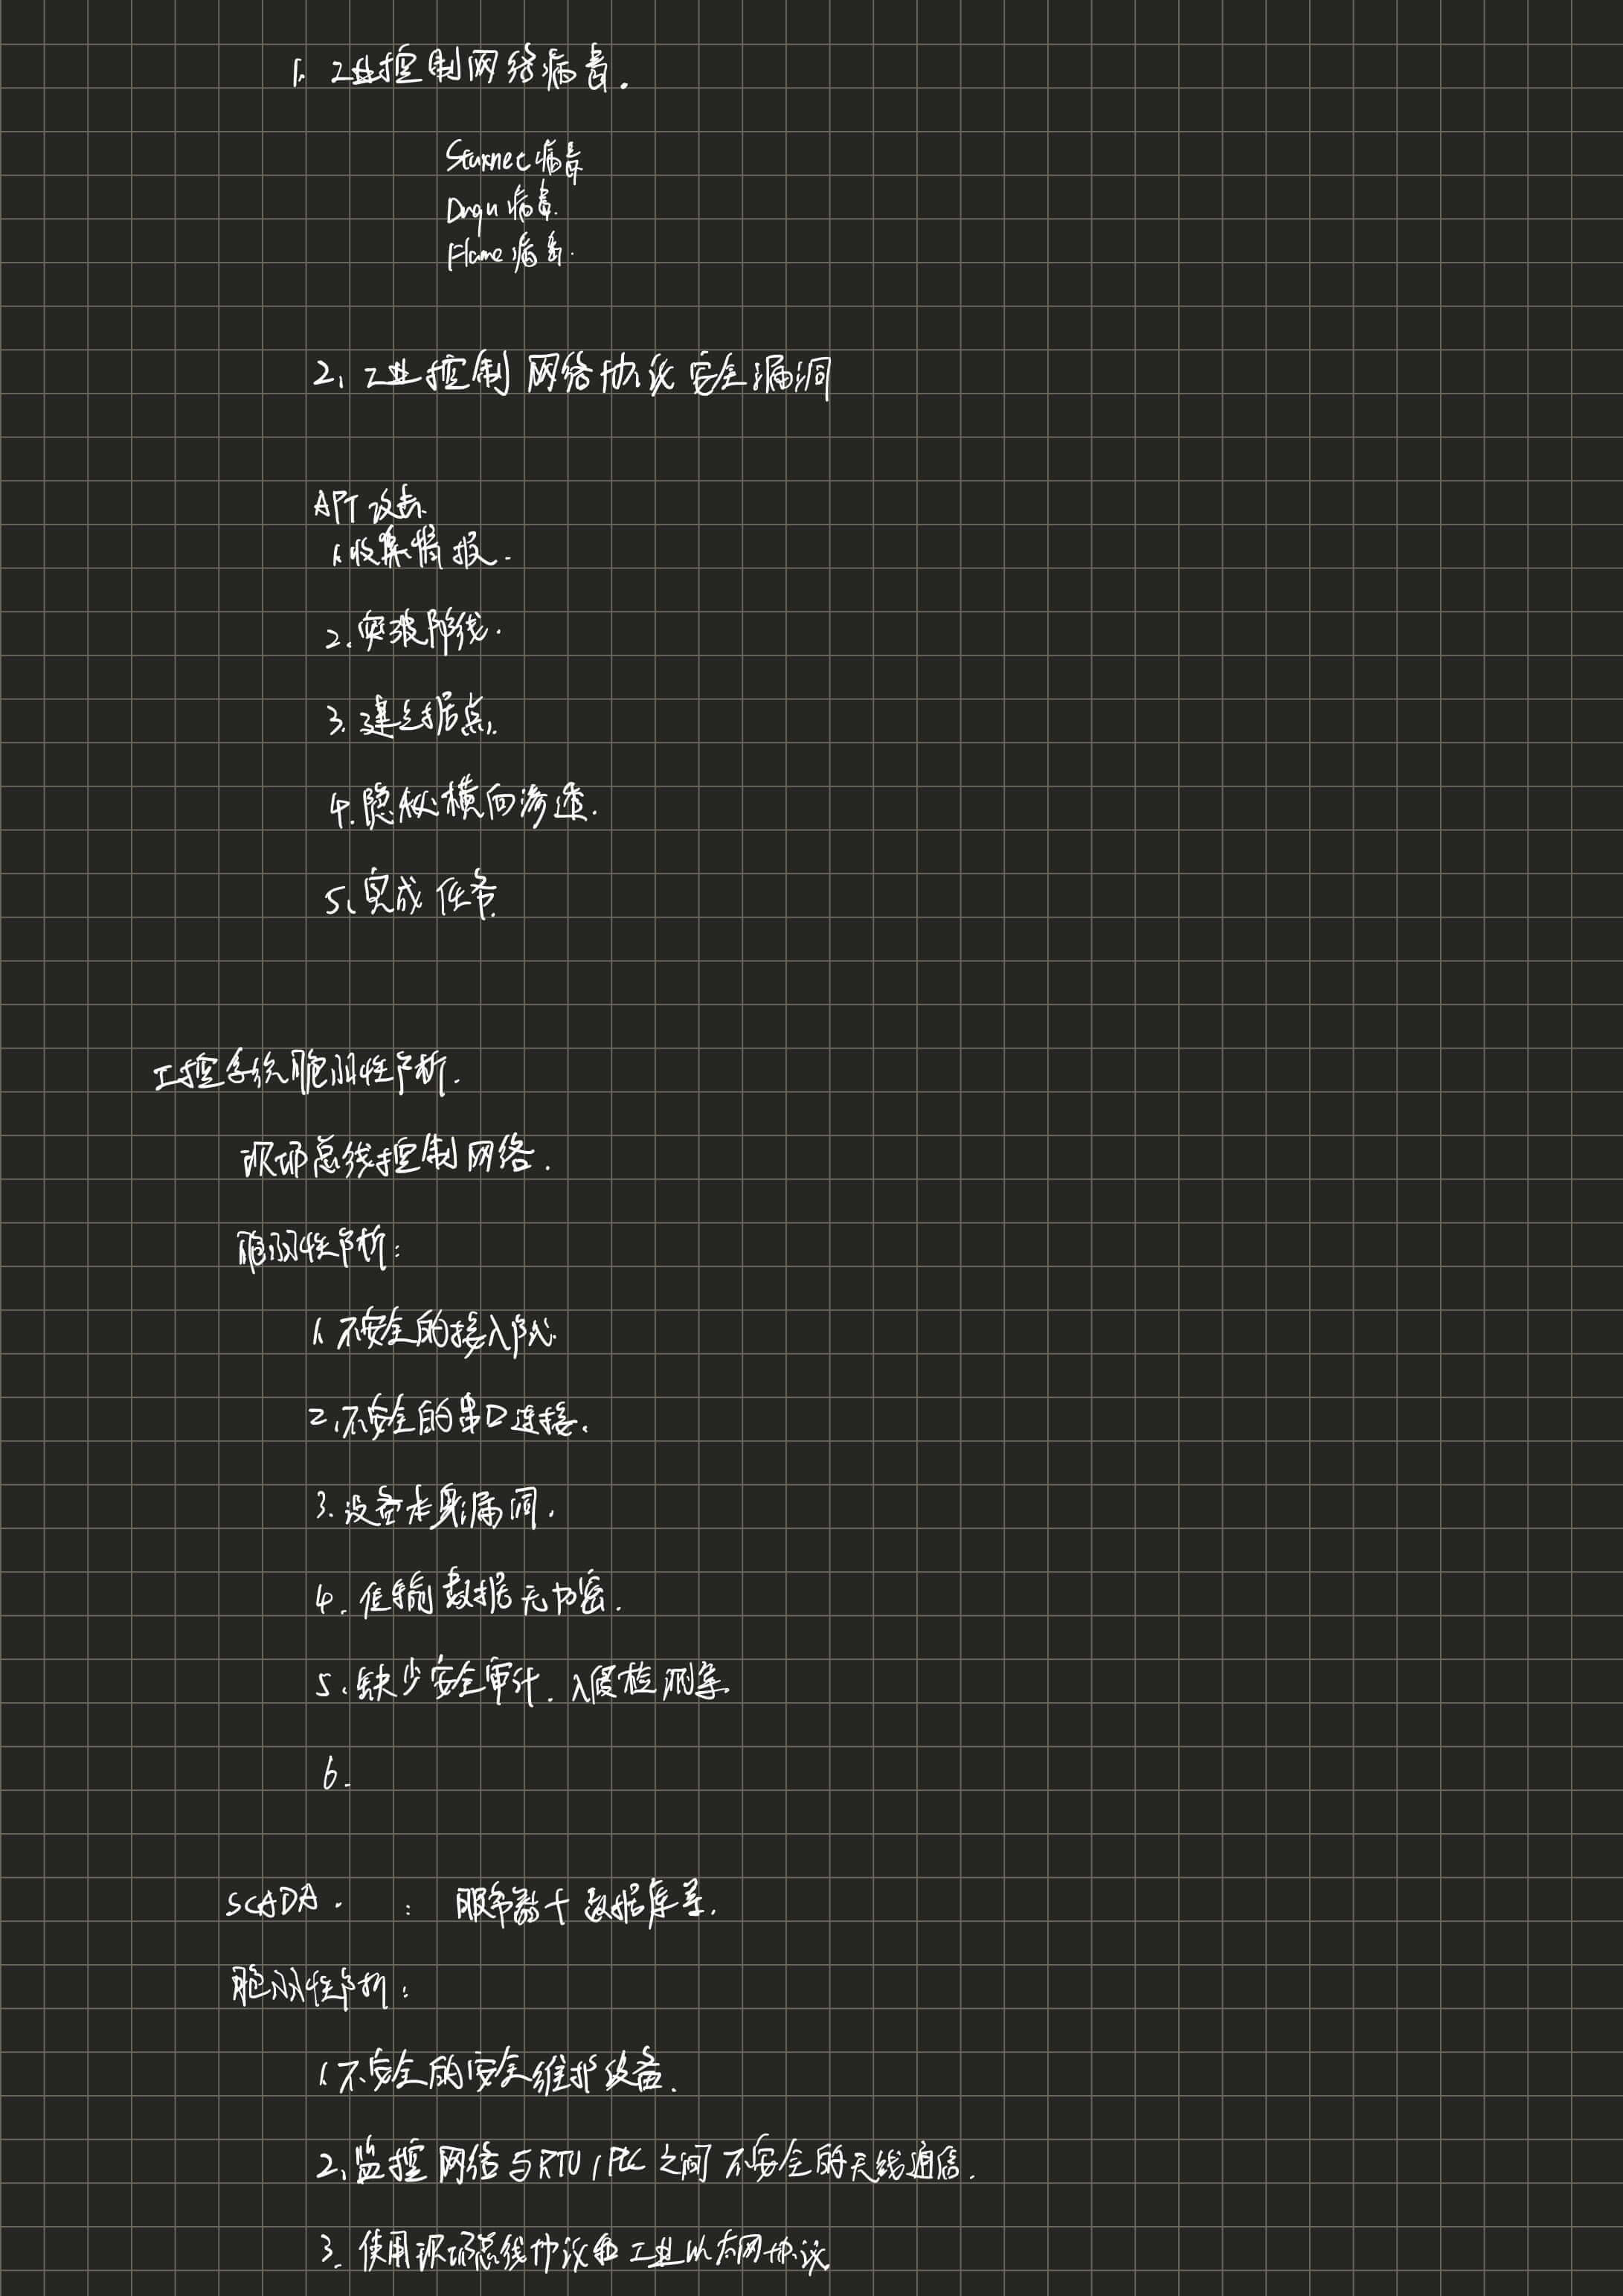 1. 工业控制网络病毒.
Stuxnet病毒
Duqu病毒.
Flame病毒.
2、工业控制网络协议安全漏洞
APT攻击.
1.收集情报.
2.突破防线.
3.建立据点.
4.隐秘横向渗透.
5、完成任务.
工控系统脆弱性分析.
现场总线控制网络.
脆弱性分析:
1.不安全的接入方式.
2.不安全的串口连接.
3.设备本身漏洞.
4.传输数据无加密.
5.缺少安全审计.入侵检测等.
6.
SCADA. : 服务器+数据库等.
脆弱性分析:
1.不安全的安全维护设备.
2、监控网络与RTU/PLC之间不安全的无线通信.
3. 使用现场总线协议和工业以太网协议.